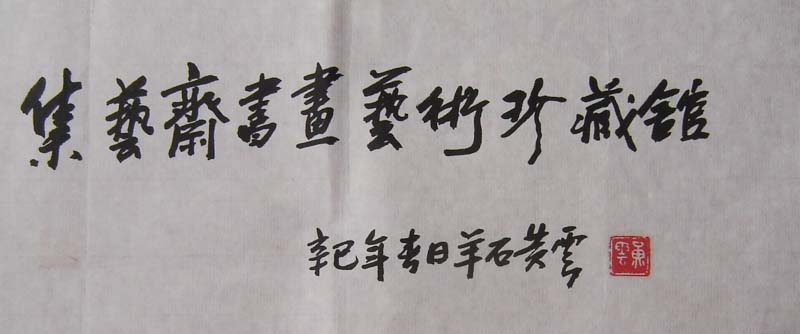 集藝齋書畫藝術珍藏舘
辛巳年春日羊石黄雲